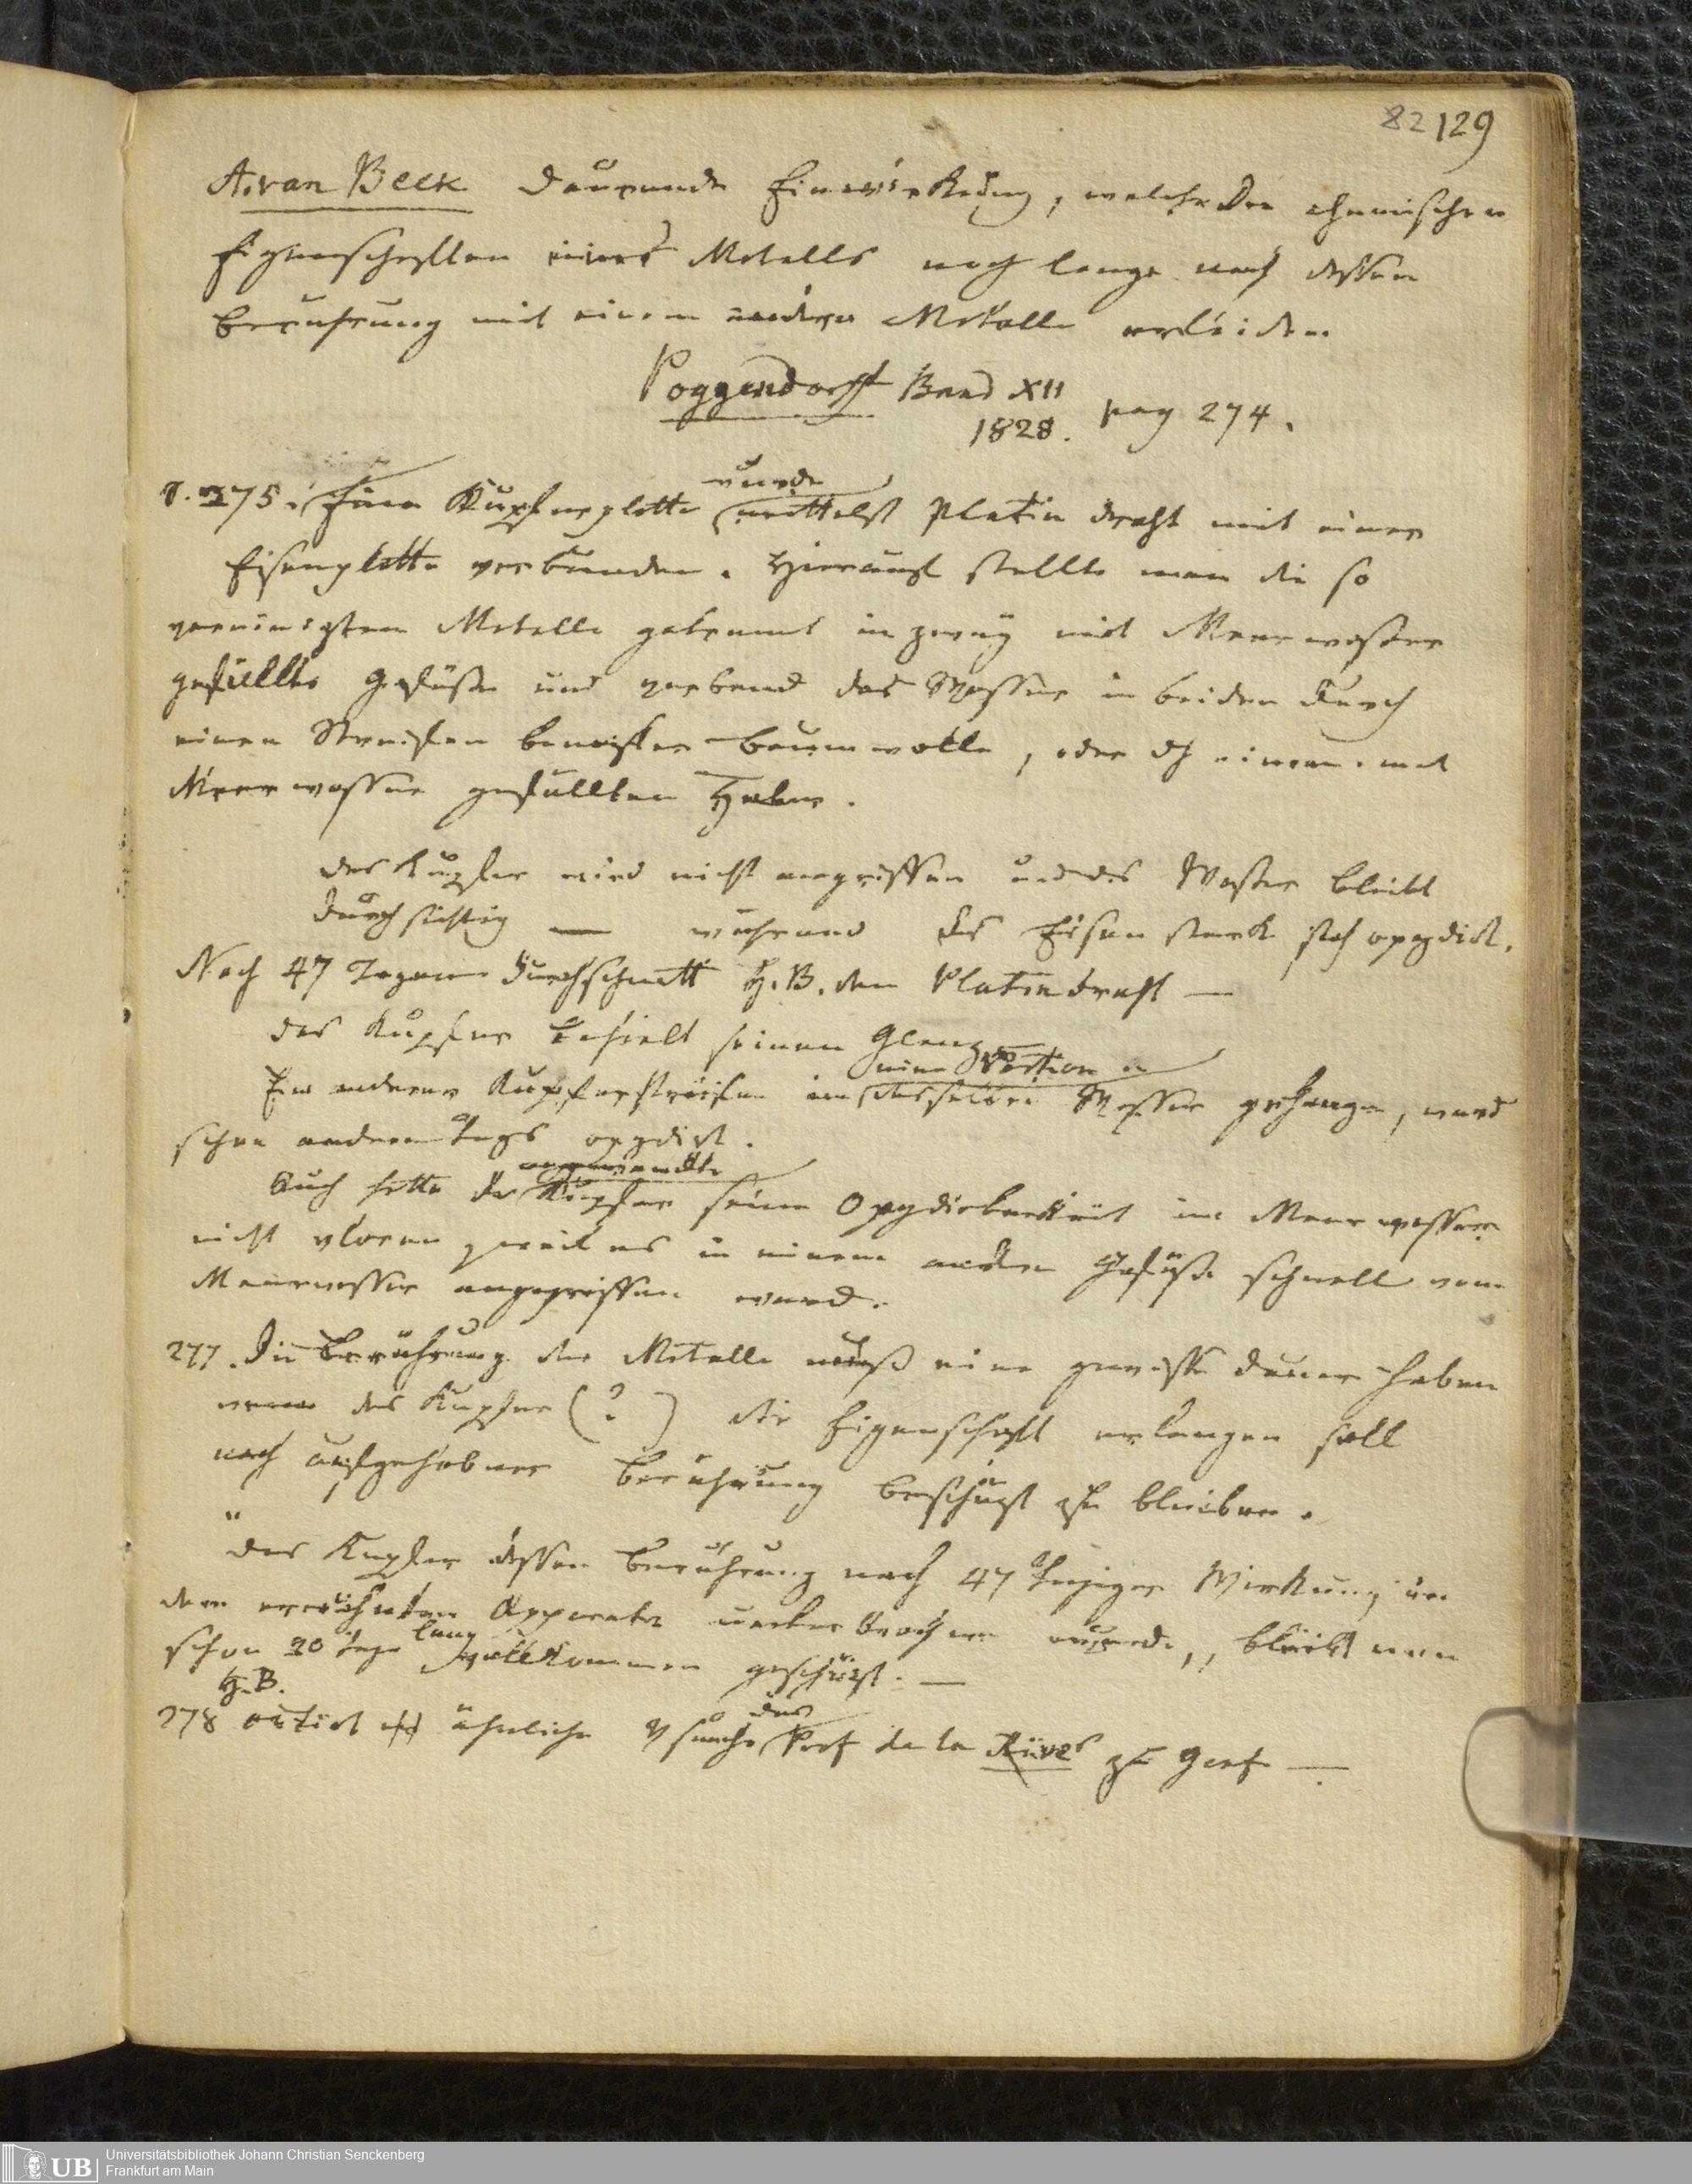 82 129
A. van Beek dauernde Einwirkung, welche die chemischen
Eigenschaften eines Metalls noch lange nach dessen
Berührung mit einem andern Metalle erleiden
Poggendorff Band XII
1828. pag 274.
S. 275. Eine Kupferplatte wurde mittelst Platin draht mit einer
Eisenplatte verbunden. Hierauf stellte man die so
vereinigten Metalle getrennt in zwey mit Meerwasser
gefüllte Gefäße und verband das Wasser in beiden durch
einen Streifen Baumwolle, oder dh einen mit
Meerwasser gefüllten Heber.
das Kupfer wird nicht angriffen und das Wasser bleibt
durchsichtig — während das Eisen stark sich oxydirt.
Nach 47 Tagen durchschnitt H. B. den Platindraht —
das Kupfer behielt seinen Glanz
Ein anderer Kupferstreifen in eine Portion desselben Wasser gehangen, ward
schon andern Tags oxydirt.
Auch hatte das angewandte Kupfer seine Oxydirbarkeit im Meerwasser
nicht vloren weil es in einem andern Gefäße schnell vom
Meerwasser angegriffen ward.
277. Die Berührung der Metalle muß eine gewisse Dauer haben
wenn das Kupfer (?) die Eigenschaft erlangen soll
nach aufgehobner Berührung beschüzt zu bleiben.
"das Kupfer dessen Berührung nach 47 tägiger Wirkung in
dem erwähnten Apparate unterbrochen wurde,, bleibt nun
schon 20 Tage lang vollkommen geschüzt. —
H. B.
278 ähnliche Vsuche des Prof de la Rive's zu Genf —
Universitätsbibliothek Johann Christian Senckenberg
Frankfurt am Main
UB